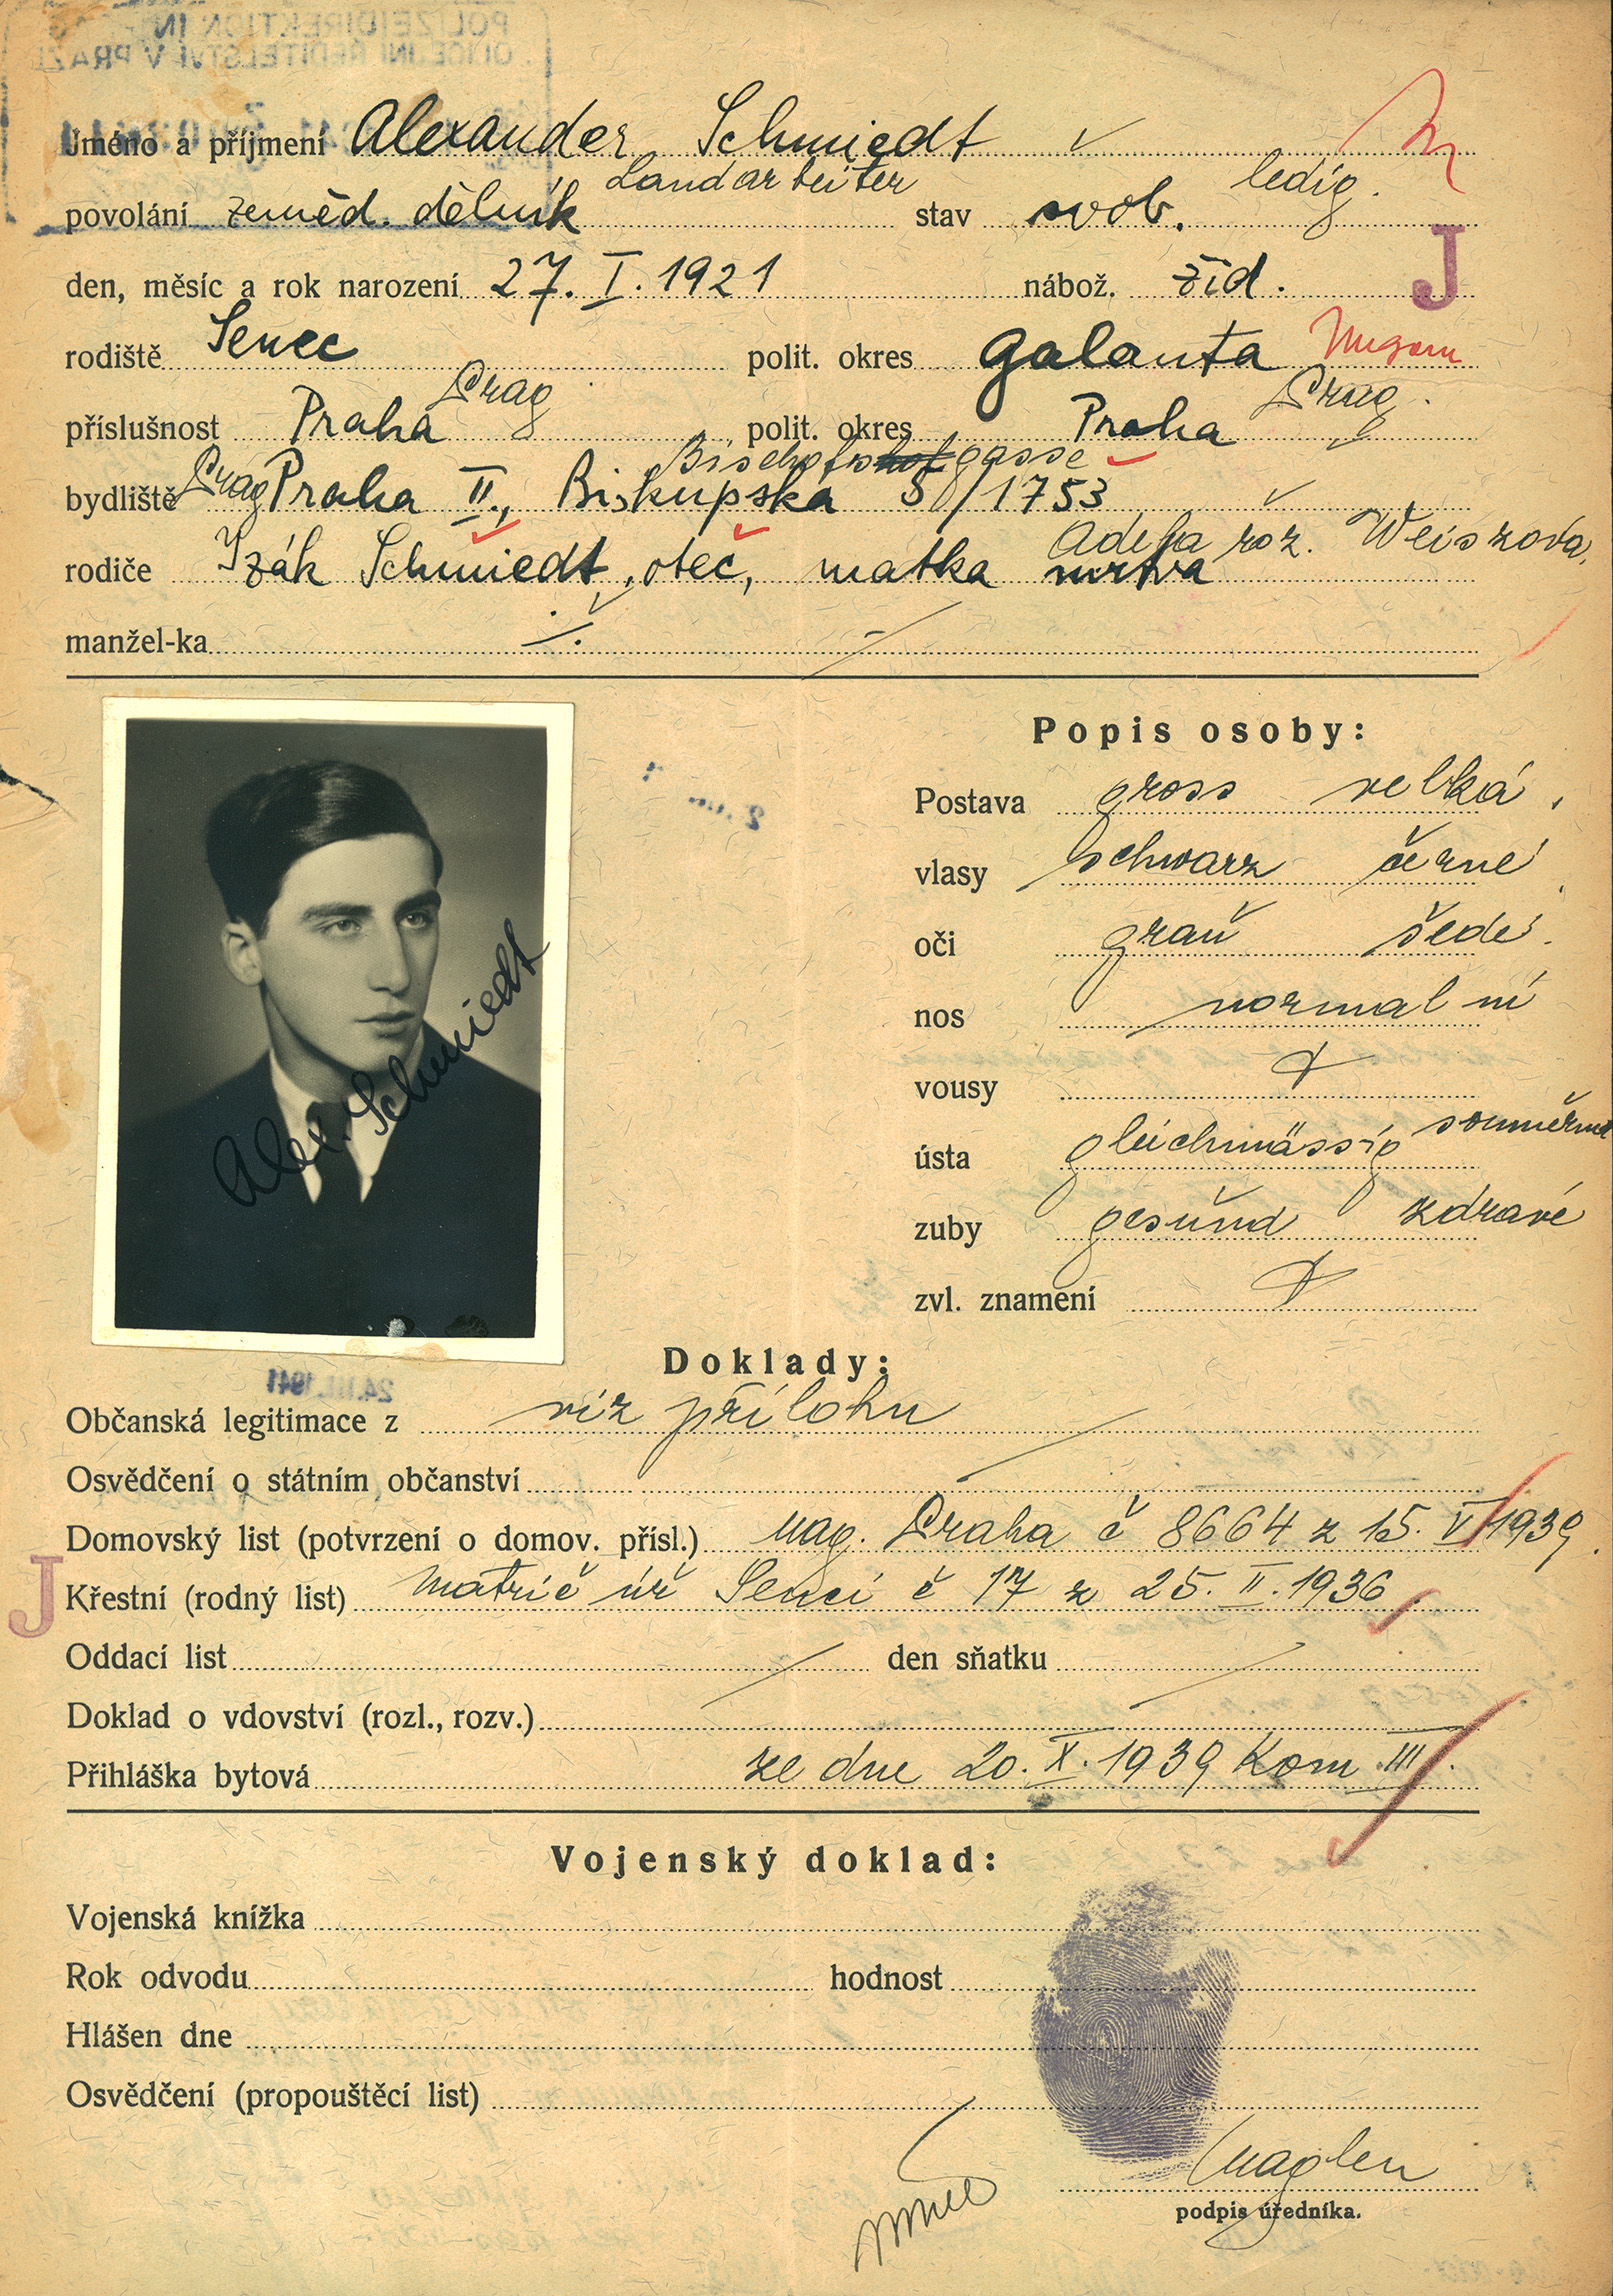 POLIZEIDIREKTION IN
POLICEJNÍ ŘEDITELSTVÍ V PRAZE
Jméno a příjmení Alexander Schmiedt
Landarbeiter ledig.
povolání zeměd. dělník stav svob.
den, měsíc a rok narození 27. I. 1921 nábož. žid. J
rodiště Senec polit. okres Galanta Ungarn
Prag Prag
příslušnost Praha polit. okres Praha
Bischofshofgasse
bydliště Prag Praha II., Biskupská 8/1753
Adela roz. Weiszová,
rodiče Izák Schmiedt, otec, matka mrtva
manžel-ka
Popis osoby:
Postava gross velká,
vlasy schwarz černé
oči grau šedé.
nos normalní
vousy
ústa gleichmässig souměrná
zuby gesund zdravé
zvl. znamení
Alex. Schmiedt
24.III.1941
Doklady:
Občanská legitimace z viz přílohu
Osvědčení o státním občanství
Domovský list (potvrzení o domov. přísl.) mag. Praha č 8664 z 15. V 1939.
J
Křestní (rodný list) matrič úř Senci č 17 z 25. II. 1936
Oddací list den sňatku
Doklad o vdovství (rozl., rozv.)
Přihláška bytová ze dne 20. X. 1939 Kom III.
Vojenský doklad:
Vojenská knížka
Rok odvodu hodnost
Hlášen dne
Osvědčení (propouštěcí list)
podpis úředníka.